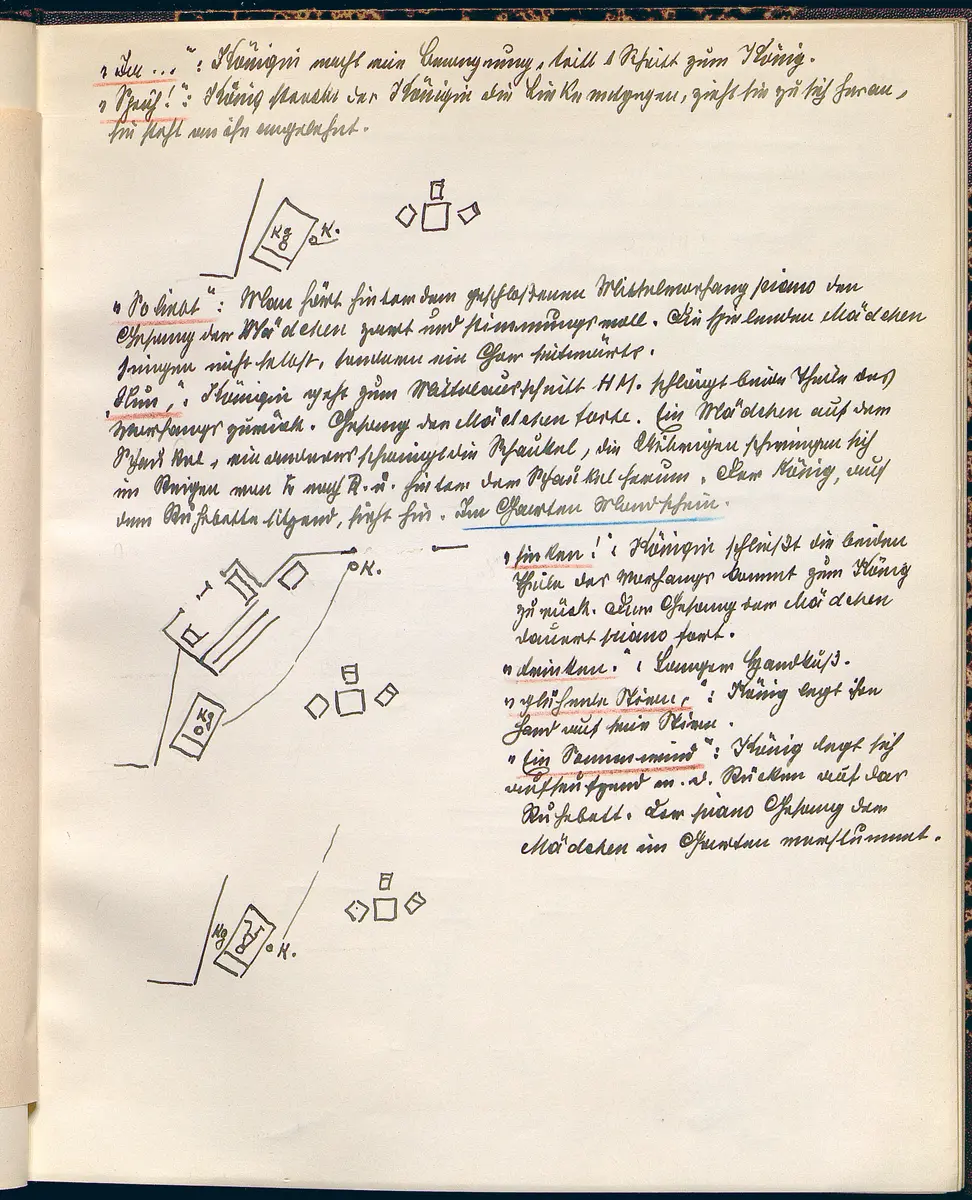 "Du ...": Königin macht eine Bewegung, tritt 1 Schritt zum König.
"Sprich!": König streckt der Königin die Linke entgegen, zieht sie zu sich heran,
sie steht an ihn angelehnt.
Kg
K.
"So liebt": Man hört hinter dem geschlossenen Mittelvorhang piano den
Gesang der Mädchen zart und stimmungsvoll. Die spielenden Mädchen
singen nicht selbst, sondern ein Chor seitwärts.
"Nun,": Königin geht zum Mittelausschnitt HM. schlägt beide Theile des
Vorhangs zurück. Gesang der Mädchen forte. Ein Mädchen auf der
Schaukel, ein anderes schwingt die Schaukel, die Übrigen schwingen sich
im Reigen von L nach R. u. hinter der Schaukel herum. Der König, auf
dem Ruhebette sitzend, sieht hin. Im Garten Mondschein.
K.
Kg
"sinken!": Königin schließt die beiden
Theile des Vorhangs kommt zum König
zurück. Der Gesang der Mädchen
dauert piano fort.
"trinken.": Langer Handkuß.
"glühende Stirn,": König legt ihre
Hand auf seine Stirn.
"Ein Sonnenwind": König legt sich
aufseufzend m. d. Rücken auf das
Ruhebett. Der piano Gesang der
Mädchen im Garten verstummt.
Kg
K.